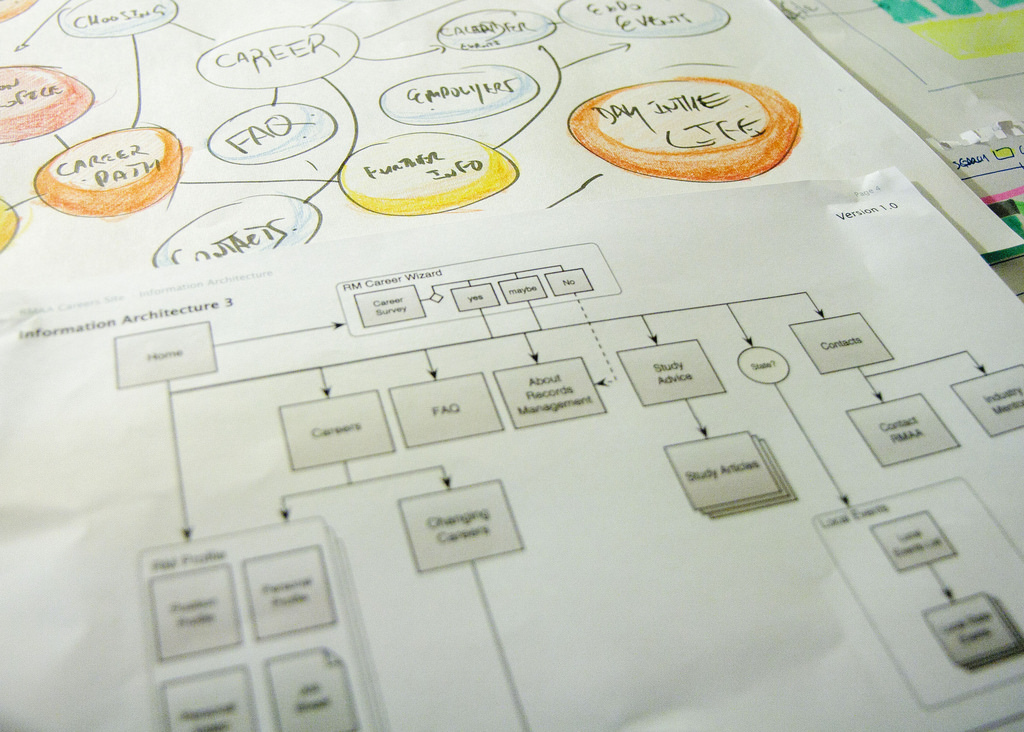 CHOOSING
CAREER
CALENDER
EVENTS
EXPO
EVENTS
EMPLOYERS
FAQ
DAY IN THE
LIFE
CAREER
PATH
FURTHER
INFO
CONTACTS
SEARCH
Page 4
Version 1.0
RMAA Careers Site Information Architecture
Information Architecture 3
RM Career Wizard
Career
Survey
yes
maybe
No
Home
Careers
FAQ
About
Records
Management
Study
Advice
State?
Contacts
Contact
RMAA
Industry
Study Articles
Changing
Careers
RM Profile
Position
Profile
Personal
Profile
Personal
Local Events
Local
Events List